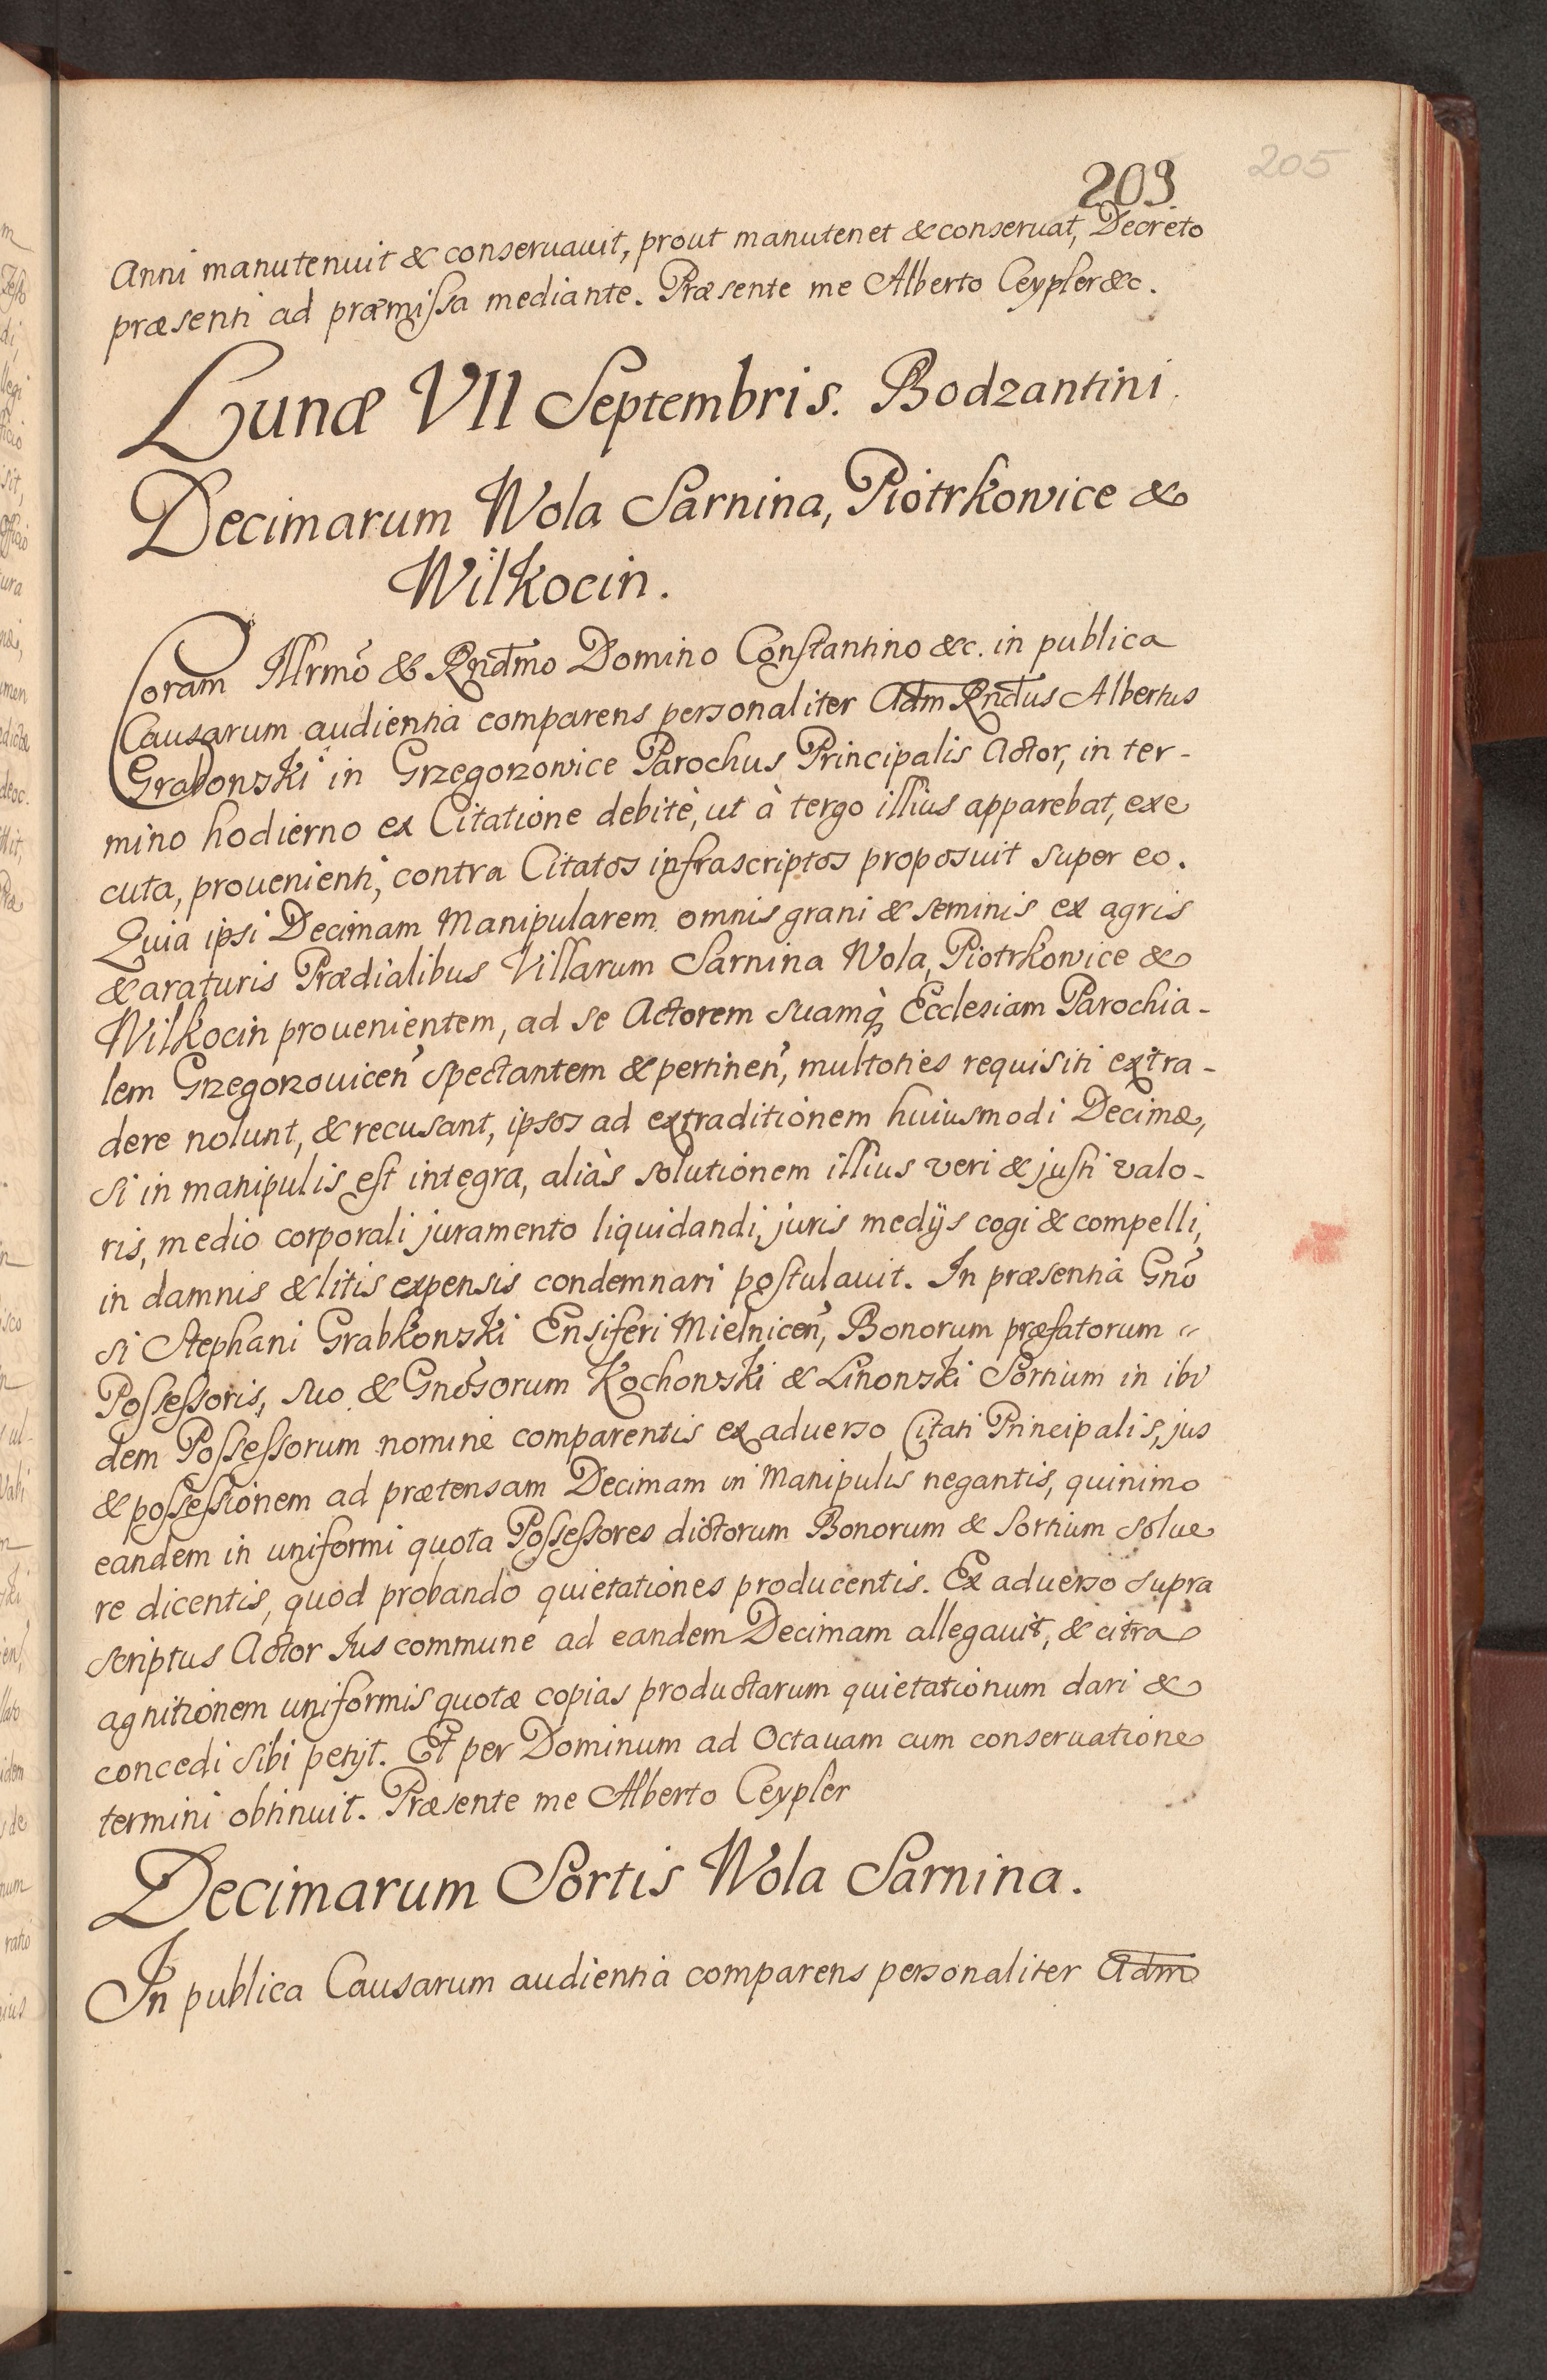 205
209
Anni manutenuit & conseruauit, prout manutenet & conseruat, Decreto
præsenti ad præmissa mediante. Præsente me Alberto Ceypler &c.
Lunæ VII Septembris. Bodzantini.
Decimarum Wola Sarnina, Piotrkowice &
Wilkocin.
Coram Illrmo & Rndmo Domino Constantino &c. in publica
Causarum audientia comparens personaliter Adm Rndus Albertus
Grabowski in Grzegorzowice Parochus Principalis Actor, in ter-
mino hodierno ex Citatione debitè, ut à tergo illius apparebat, exe
cuta, prouenienti, contra Citatos infrascriptos proposuit super eo.
Quia ipsi Decimam Manipularem omnis grani & seminis ex agris
& araturis Prædialibus Villarum Sarnina Wola, Piotrkowice &
Wilkocin prouenientem, ad se Actorem suamq; Ecclesiam Parochia-
lem Grzegorzouicen spectantem & pertinen, multoties requisiti extra-
dere nolunt, & recusant, ipsos ad extraditionem huiusmodi Decimæ,
si in manipulis est integra, aliàs solutionem illius veri & justi valo-
ris, medio corporali juramento liquidandi, juris medijs cogi & compelli,
in damnis & litis expensis condemnari postulauit. In præsentia Gno
si Stephani Grabkowski Ensiferi Mielnicen, Bonorum præfatorum "
Possessoris, suo & Gnosorum Kochowski & Linowski Sortium in ibi
dem Possessorum nomine comparentis ex aduerso Citati Principalis, jus
& possessionem ad prætensam Decimam in Manipulis negantis, quinimo
eandem in uniformi quota Possessores dictorum Bonorum & Sortium solue
re dicentis, quod probando quietationes producentis. Ex aduerso supra
scriptus Actor Jus commune ad eandem Decimam allegauit, & citra
agnitionem uniformis quotæ copias productarum quietationum dari &
concedi sibi petijt. Et per Dominum ad Octauam cum conseruatione
termini obtinuit. Præsente me Alberto Ceypler
Decimarum Sortis Wola Sarnina.
In publica Causarum audientia comparens personaliter Adm